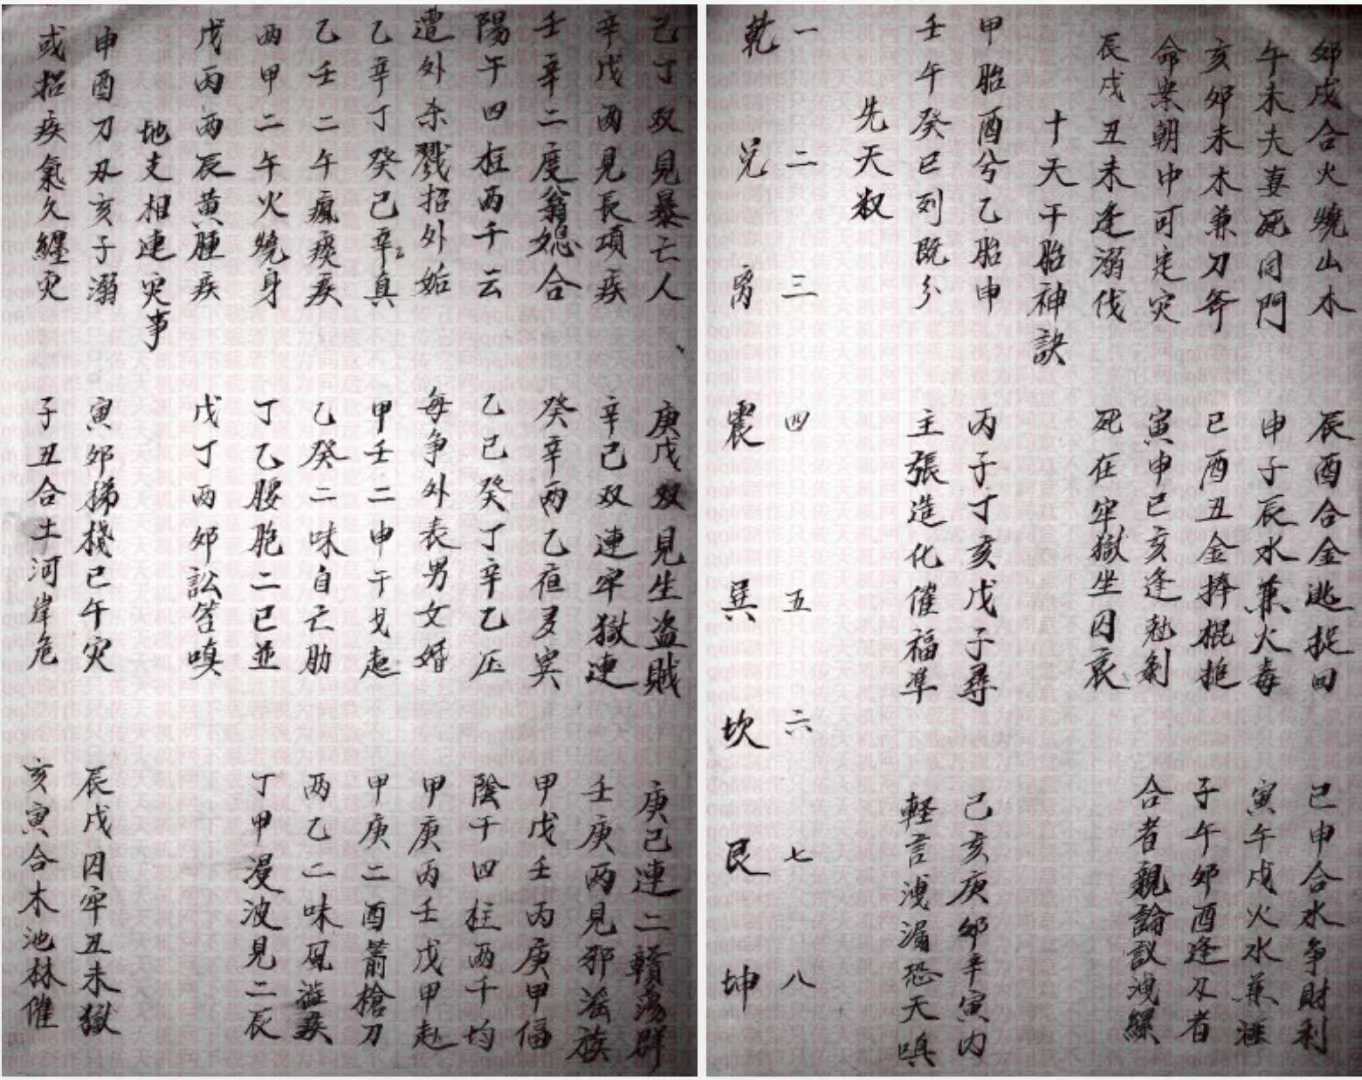 己丁双見暴亡人 庚戊双見生盗賊 庚己連二贛蕩群
辛戊两見長項疾 辛己双連牢獄連 壬庚两見邪淫族
壬辛二度翁媳合 癸辛两乙疽多 甲戊壬丙庚甲偪
陽午四柱两千云 乙己癸丁辛乙压 陰干四柱两干均
遭外杀戮招外姤 每争外表男女婚 甲庚丙壬戊甲赴
乙辛丁癸己辛真 甲壬二申干戈起 甲庚二酉箭槍刀
乙壬二午瘋痰疾 乙癸二味自亡肋 两乙二味風溢疾
两甲二午火燒身 丁乙腰胞二已並 丁甲漫波見二辰
戊丙两辰黄腫疾 戊丁两卯訟笞嗔
地支相連灾事
申酉刀刃亥子溺 寅卯梯棧已午灾 辰戌囚牢丑未獄
或招疾氣久纏灾 子丑合土河岸危 亥寅合木池林催
卯戌合火燒山木 辰酉合金逃捉回 已申合水争財利
午未夫妻死同門 申子辰水兼火毒 寅午戌火水兼淮
亥卯未木兼刀斧 已酉丑金捧棍拖 子午卯酉逢刃者
命案朝中可定灾 寅申已亥逢剋剝 合者親論議洩縲
辰戌丑未逢溺伐 死在牢獄坐囚哀
十天干胎神訣
甲胎酉兮乙胎申 丙子丁亥戊子尋 己亥庚卯辛寅内
壬午癸已列既分 主張造化催福準 軽言洩漏恐天嗔
先天数
一 二 三 四 五 六 七 八
乾 兑 离 震 巽 坎 艮 坤